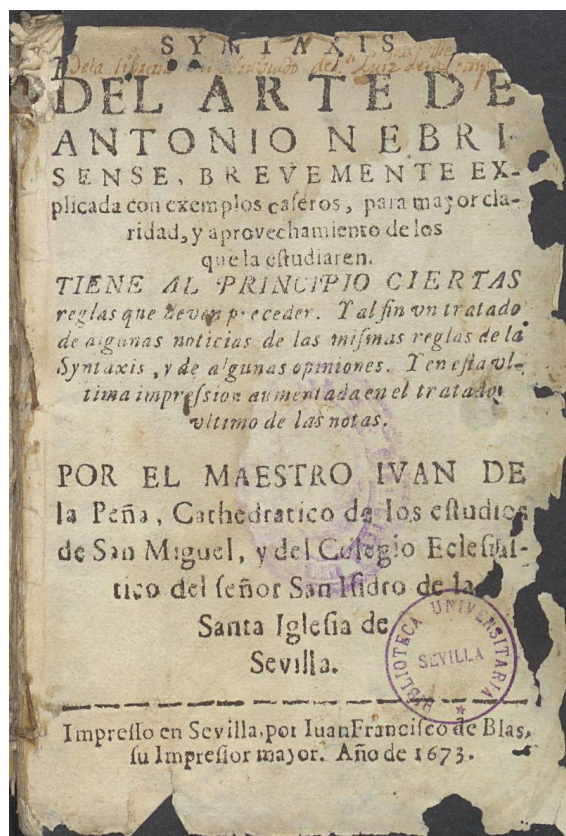 SYNTAXIS
DEL ARTE DE
ANTONIO NEBRI-
SENSE, BREVEMENTE EX-
plicada con exemplos caſeros, para mayor cla-
ridad, y aprovechamiento de los
que la eſtudiaren.
TIENE AL PRINCIPIO CIERTAS
reglas que deven preceder. Y al fin vn tratado
de algunas noticias de las miſmas reglas de la
Syntaxis, y de algunas opiniones. Y en eſta vl-
tima impreſsion aumentada en el tratado
vltimo de las notas.
POR EL MAESTRO IVAN DE
la Peña, Cathedratico de los eſtudios
de San Miguel, y del Colegio Ecleſiaſ-
tico del ſeñor San Iſidro de la
Santa Igleſia de
Sevilla.
BIBLIOTECA UNIVERSITARIA
SEVILLA
Impreſſo en Sevilla, por Iuan Franciſco de Blas,
ſu Impreſſor mayor. Año de 1673.